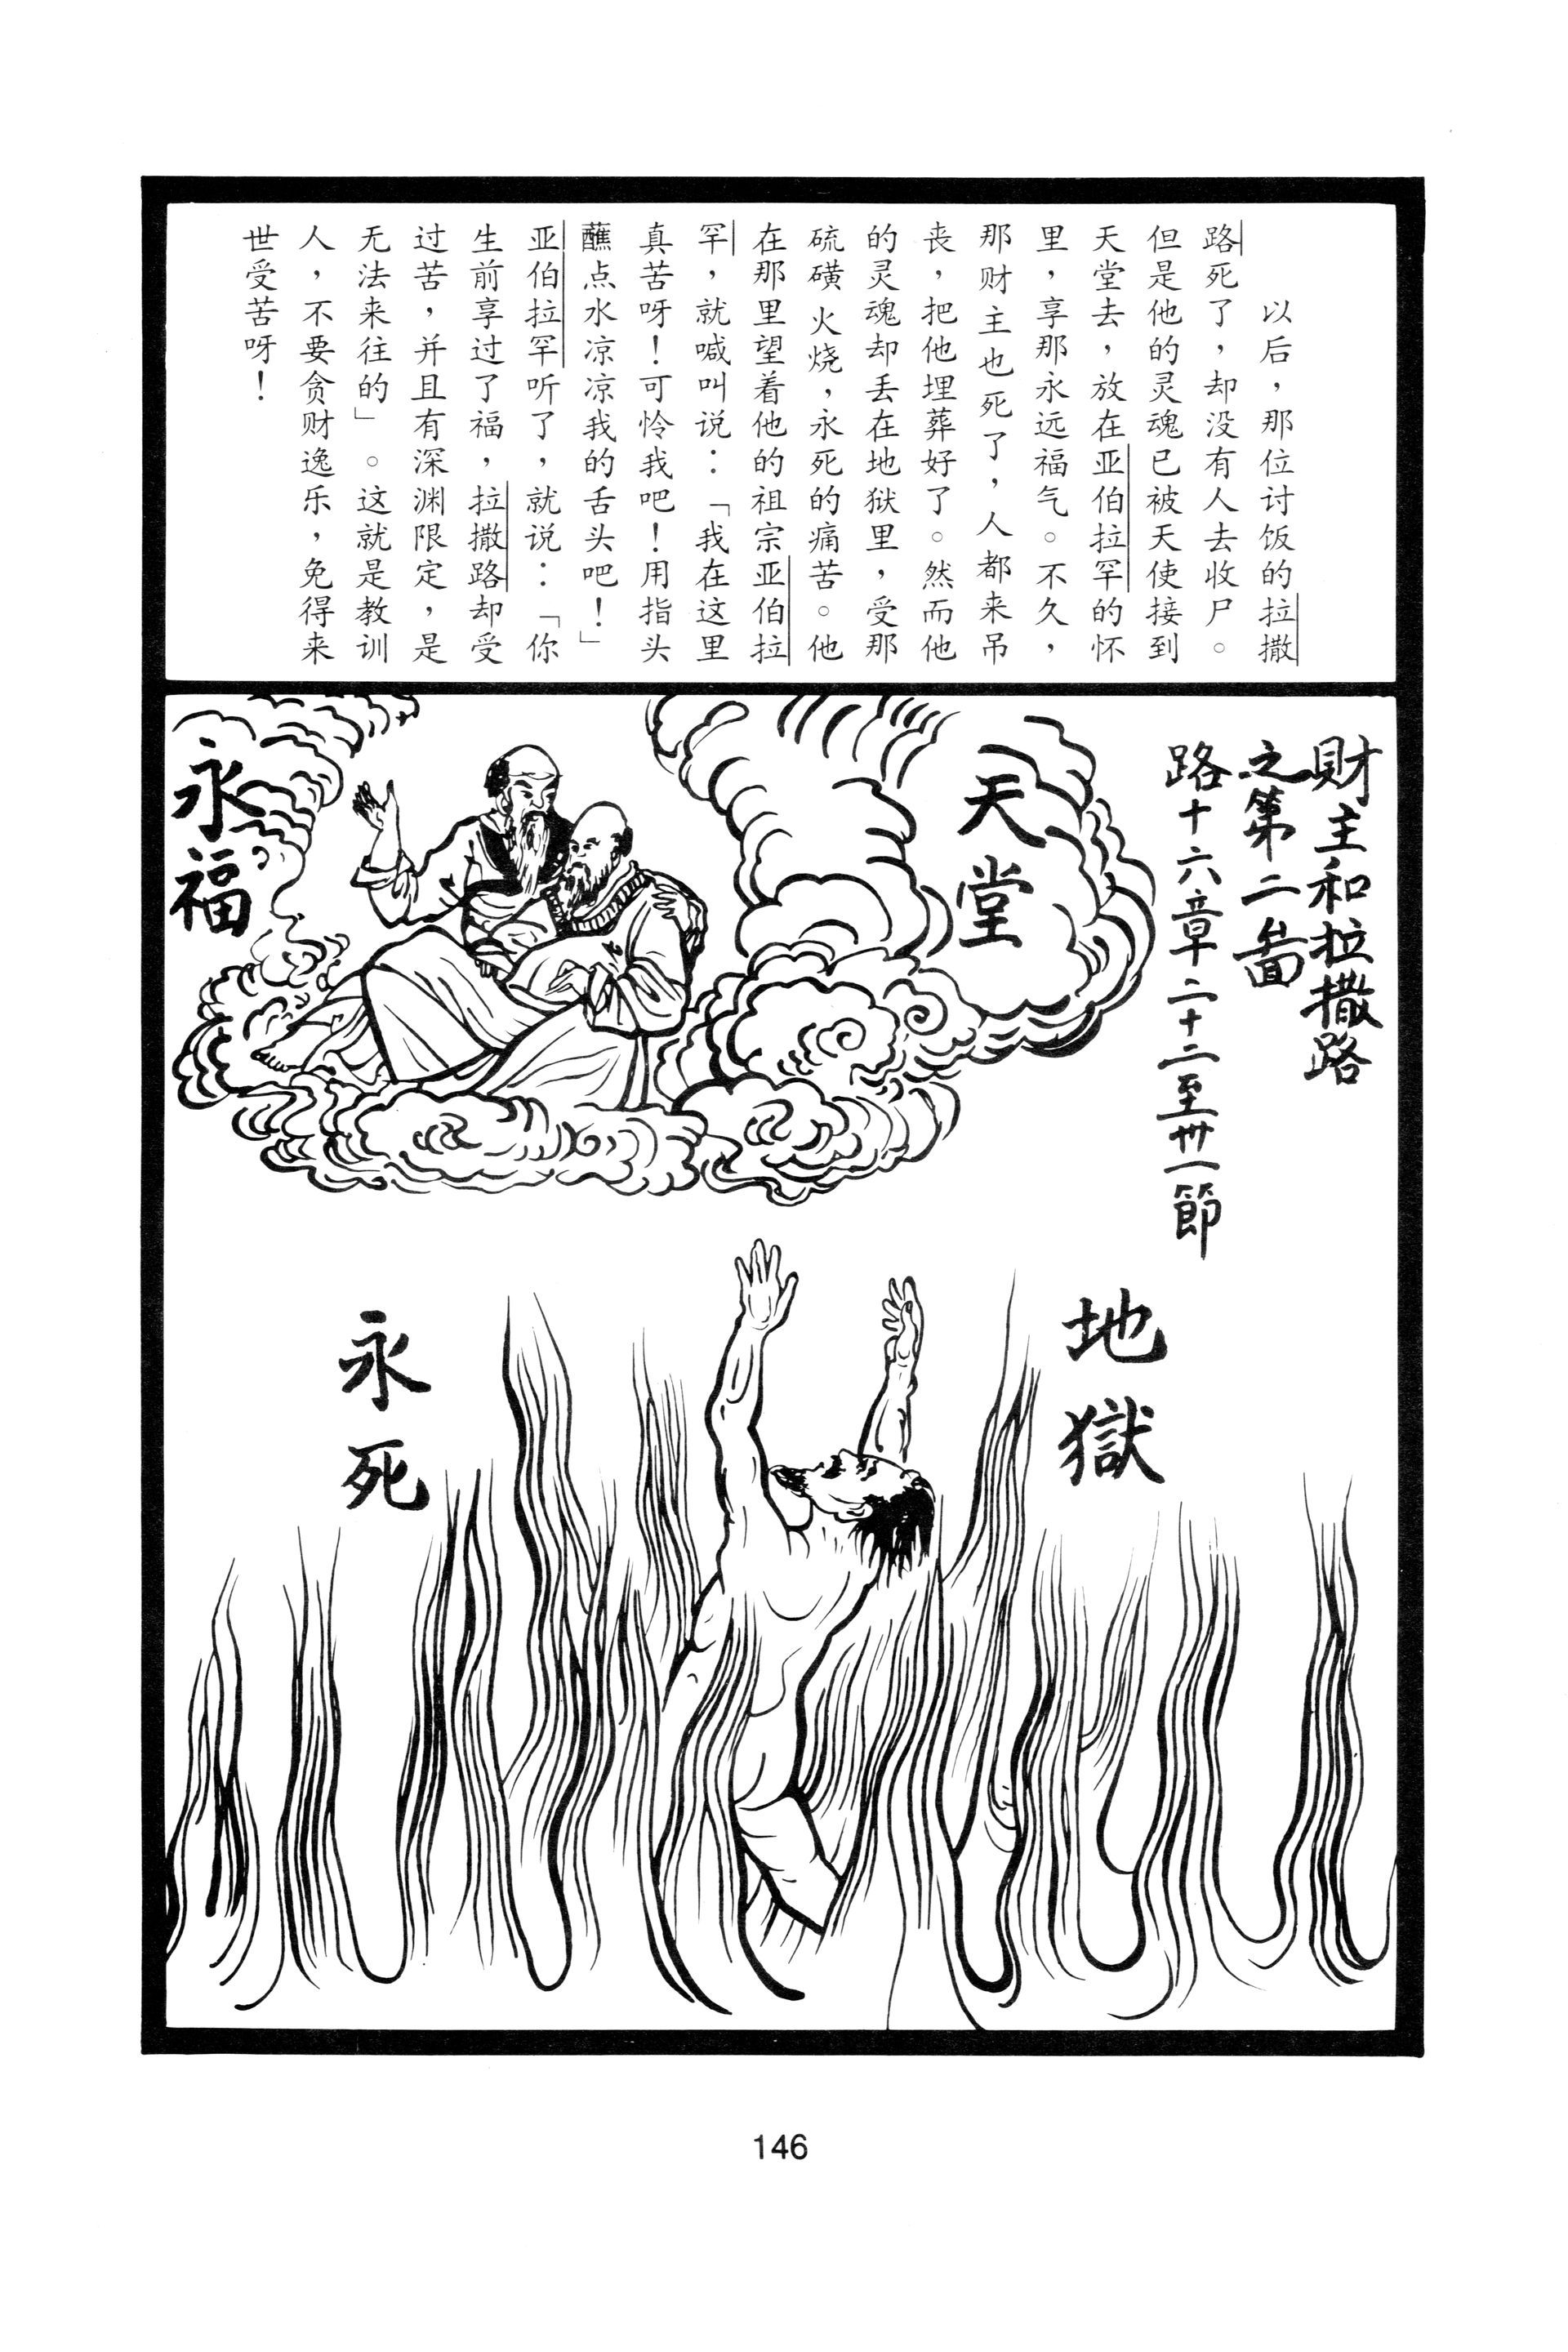 以后，那位讨饭的拉撒
路死了，却没有人去收尸。
但是他的灵魂已被天使接到
天堂去，放在亚伯拉罕的怀
里，享那永远福气。不久，
那财主也死了，人都来吊
丧，把他埋葬好了。然而他
的灵魂却丢在地狱里，受那
硫磺火烧，永死的痛苦。他
在那里望着他的祖宗亚伯拉
罕，就喊叫说：「我在这里
真苦呀！可怜我吧！用指头
蘸点水凉凉我的舌头吧！」
亚伯拉罕听了，就说：「你
生前享过了福，拉撒路却受
过苦，并且有深渊限定，是
无法来往的」。这就是教训
人，不要贪财逸乐，免得来
世受苦呀！
財主和拉撒路
之第二啚
路十六章二十二至卅一節
天堂
永福
地獄
永死
146